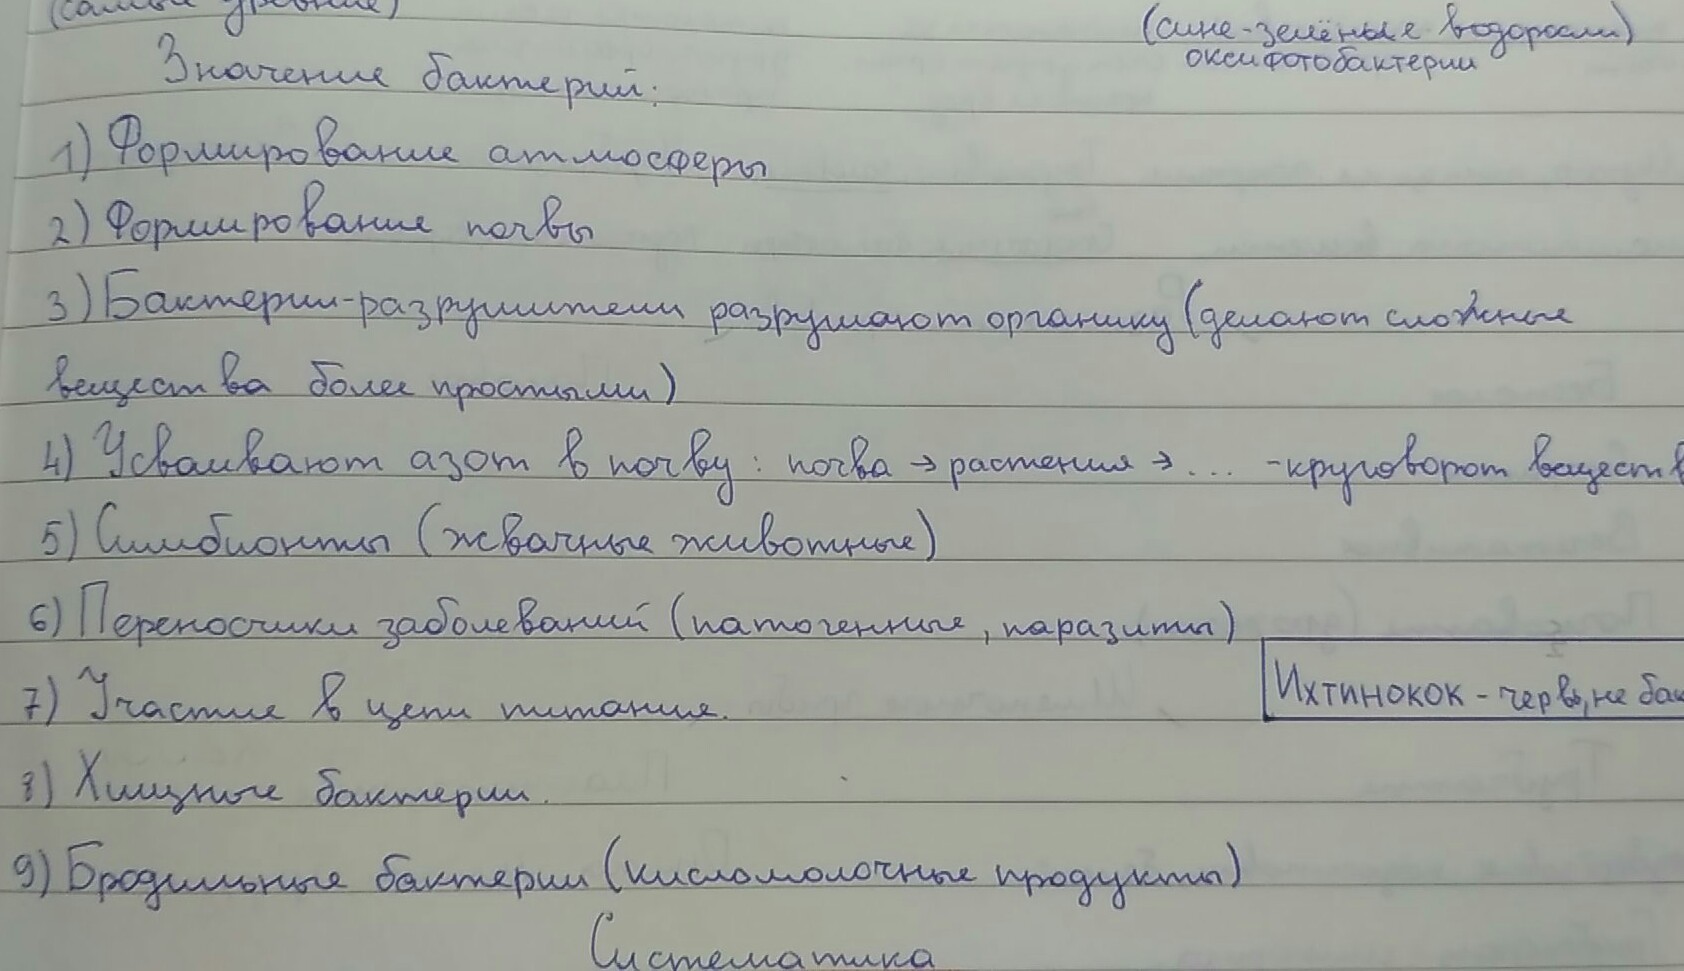 (самые древние)
(сине-зелёные водоросли)
оксифотобактерии
Значение бактерий:
1) Формирование атмосферы
2) Формирование почвы
3) Бактерии-разрушители разрушают органику (делают сложные
вещества более простыми)
4) Усваивают азот в почву: почва → растения → ... - круговорот веществ
5) Симбионты (жвачные животные)
6) Переносчики заболеваний (патогенные, паразиты)
7) Участие в цепи питания.
Ихтинокок - червь, не бак
8) Хищные бактерии.
9) Бродильные бактерии (кисломолочные продукты)
Систематика